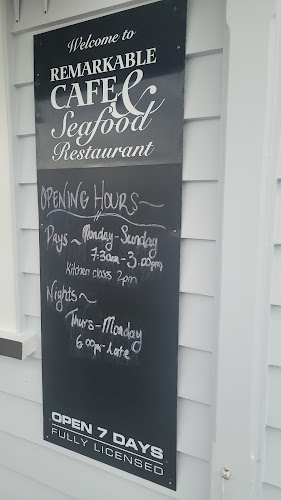 Welcome to
REMARKABLE
CAFE &
Seafood
Restaurant
OPENING HOURS~
Days ~ Monday-Sunday
7:30am-3.00pm
Kitchen closes 2pm
Nights~
Thurs-Monday
6.00pm-Late
OPEN 7 DAYS
FULLY LICENSED